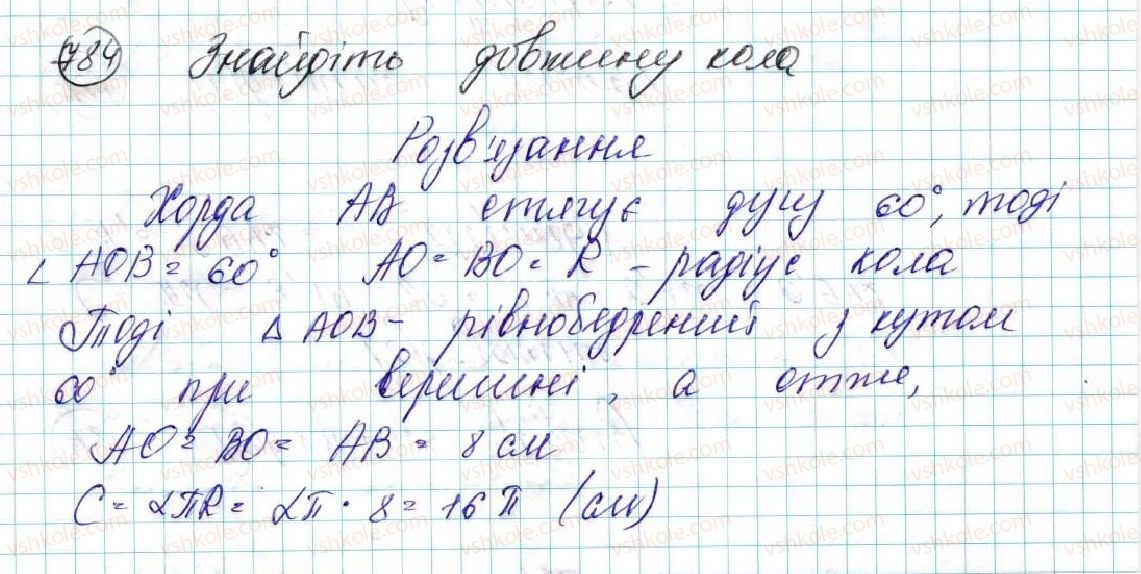 784 Знайдіть довжину кола
Розв'язання
Хорда AB стягує дугу 60°, тоді
∠ AOB = 60° AO = BO = R - радіус кола
Тоді △ AOB - рівнобедрений з кутом
60° при вершині, а отже,
AO = BO = AB = 8 см
C = 2πR = 2π · 8 = 16π (см)